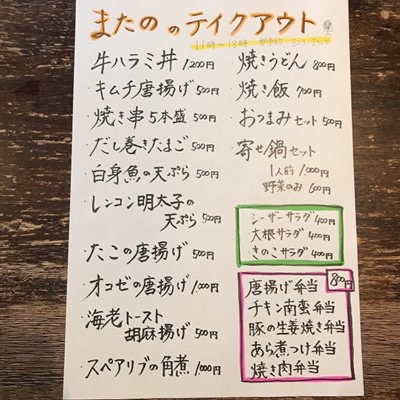 またの のテイクアウト
11時～18時
牛ハラミ丼 1,200円
・キムチ唐揚げ 500円
・焼き串5本盛 500円
・だし巻きたまご 500円
・白身魚の天ぷら 500円
・レンコン明太子の
天ぷら 500円
・たこの唐揚げ 500円
・オコゼの唐揚げ 1,000円
・海老トースト
胡麻揚げ 500円
・スペアリブの角煮 1,000円
・焼きうどん 800円
・焼き飯 700円
・おつまみセット 500円
・寄せ鍋セット
1人前 1,000円
野菜のみ 600円
・シーザーサラダ 400円
・大根サラダ 400円
・きのこサラダ 400円
800円
唐揚げ弁当
チキン南蛮弁当
豚の生姜焼き弁当
あら煮つけ弁当
焼き肉弁当